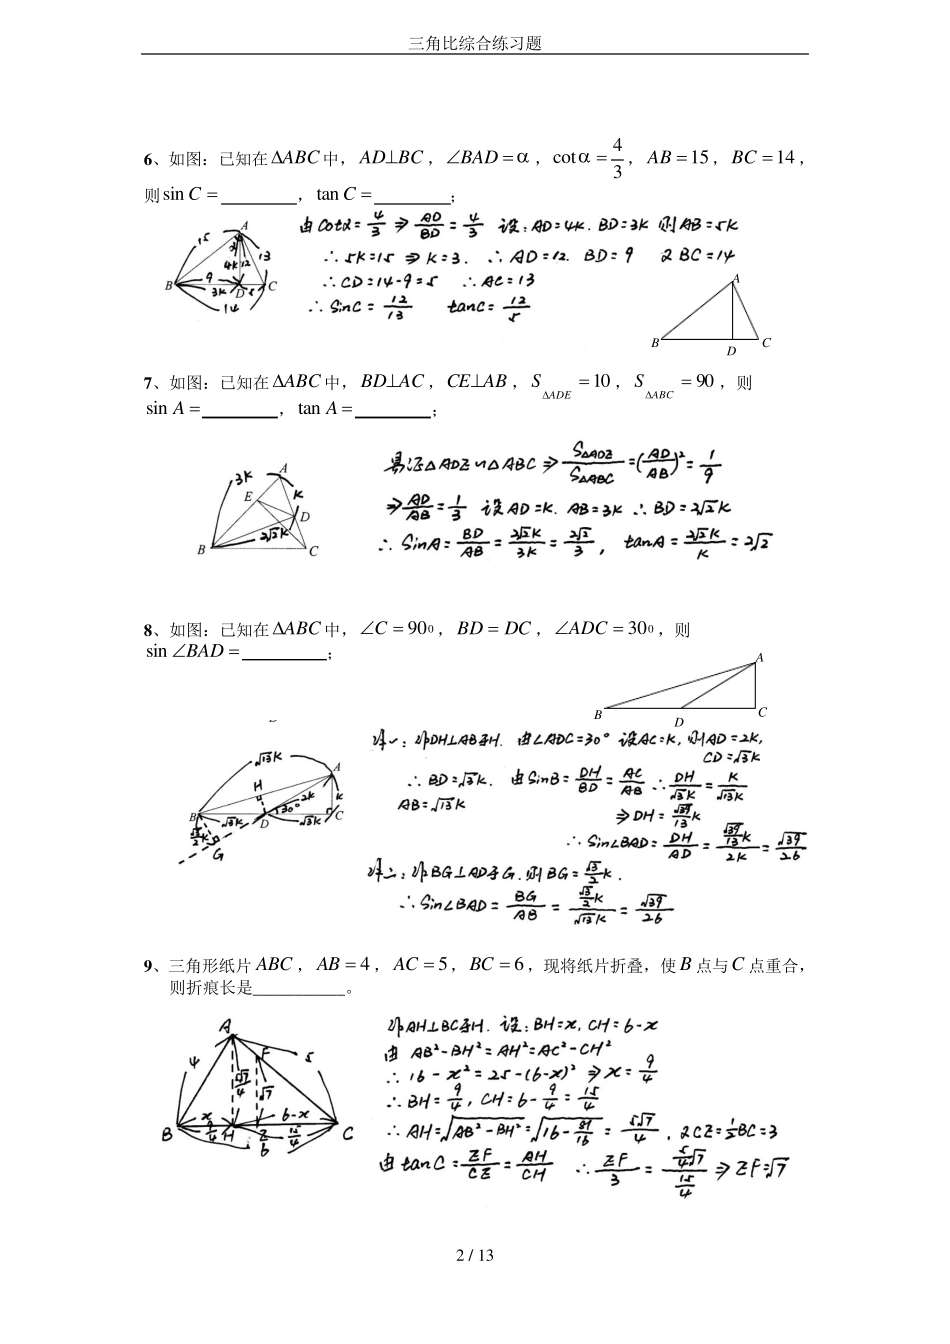 三角比综合练习题
6、如图：已知在 ΔABC 中，AD⊥BC，∠BAD = α，cot α = 4/3，AB = 15，BC = 14，
则 sin C = ________，tan C = ________；
由 cotα = 4/3 ⇒ AD/BD = 4/3 设：AD=4K. BD=3K 则 AB=5K
∴ 5K=15 ⇒ K=3. ∴ AD=12. BD=9 又 BC=14
∴ CD=14-9=5 ∴ AC=13
∴ SinC = 12/13 tanC = 12/5
A
15
α
13
4K
12
9
B
3K
D
5
C
14
A
B
D
C
7、如图：已知在 ΔABC 中，BD⊥AC，CE⊥AB，S ΔADE = 10，S ΔABC = 90，则
sin A = ________，tan A = ________；
易证△ADE∽△ABC ⇒ S△ADE/S△ABC = (AD/AB)² = 1/9
⇒ AD/AB = 1/3 设 AD=K. AB=3K ∴ BD=2√2K
∴ SinA = BD/AB = 2√2K/3K = 2√2/3, tanA = 2√2K/K = 2√2
3K
A
E
K
D
2√2K
B
C
8、如图：已知在 ΔABC 中，∠C = 90⁰，BD = DC，∠ADC = 30⁰，则
sin ∠BAD = ________；
A
B
D
C
法一：作DH⊥AB于H. 由∠ADC=30° 设AC=K, 则AD=2K,
CD=√3K
∴ BD=√3K. 由SinB = DH/BD = AC/AB ∴ DH/√3K = K/√13K
AB=√13K
⇒ DH = √39/13 K
∴ Sin∠BAD = DH/AD = (√39/13 K)/2K = √39/26
法二：作BG⊥AD于G. 则BG = √3/2 K.
∴ Sin∠BAD = BG/AB = (√3/2 K)/√13K = √39/26
√13K
A
H
2K
K
30°
B
√3K
D
√3K
C
√3/2 K
G
9、三角形纸片 ABC，AB = 4，AC = 5，BC = 6，现将纸片折叠，使 B 点与 C 点重合，
则折痕长是___________。
作AH⊥BC于H. 设：BH=x, CH=6-x
由 AB²-BH²=AH²=AC²-CH²
∴ 16-x²=25-(6-x)² ⇒ x = 9/4
∴ BH = 9/4, CH = 6-9/4 = 15/4
∴ AH = √AB²-BH² = √16-81/16 = 5√7/4, 又CE = 1/2 BC = 3
由 tanC = EF/CE = AH/CH ∴ EF/3 = (5/4 √7)/(15/4) ⇒ EF=√7
A
F
4
5
√7
x
6-x
B
9/4
H
E
15/4
C
6
2 / 13